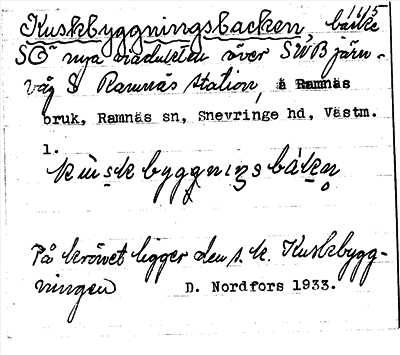 115
Kuskbyggningsbacken, backe
SO nya viadukten över SWB järn-
väg S Ramnäs station, å Ramnäs
bruk, Ramnäs sn, Snevringe hd, Västm.
1.
kùskbyggnıŋsbákən
På krönet ligger den s.k. Kuskbygg-
ningen D. Nordfors 1933.